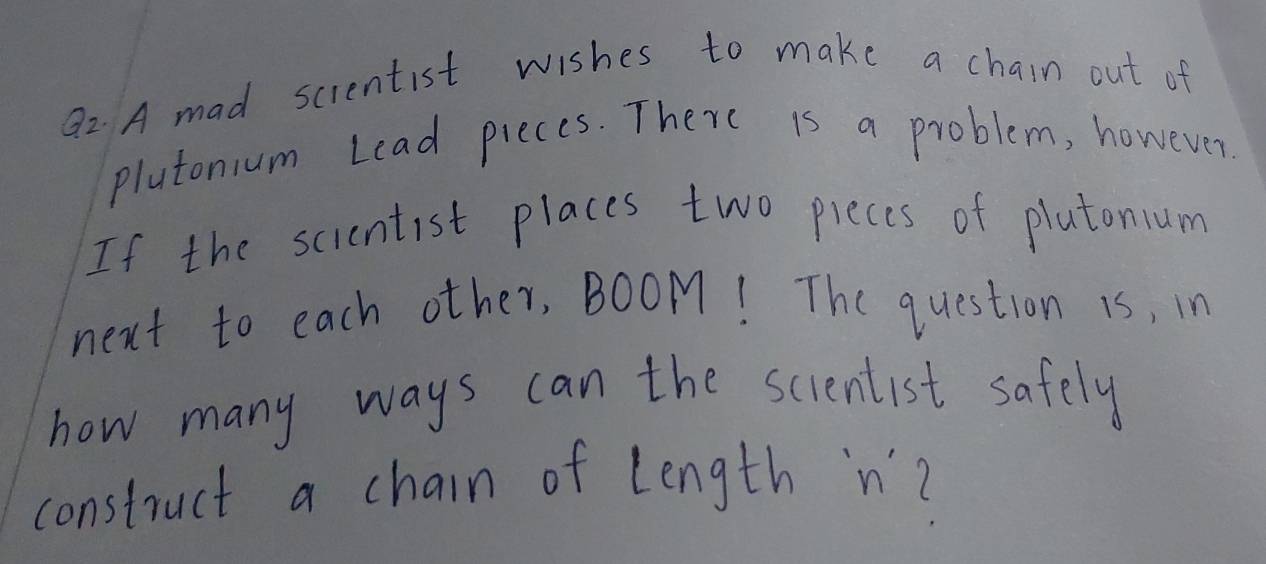 Q2. A mad scientist wishes to make a chain out of
plutonium Lead pieces. There is a problem, however.
If the scientist places two pieces of plutonium
next to each other, BOOM! The question is, in
how many ways can the scientist safely
construct a chain of Length 'n'?